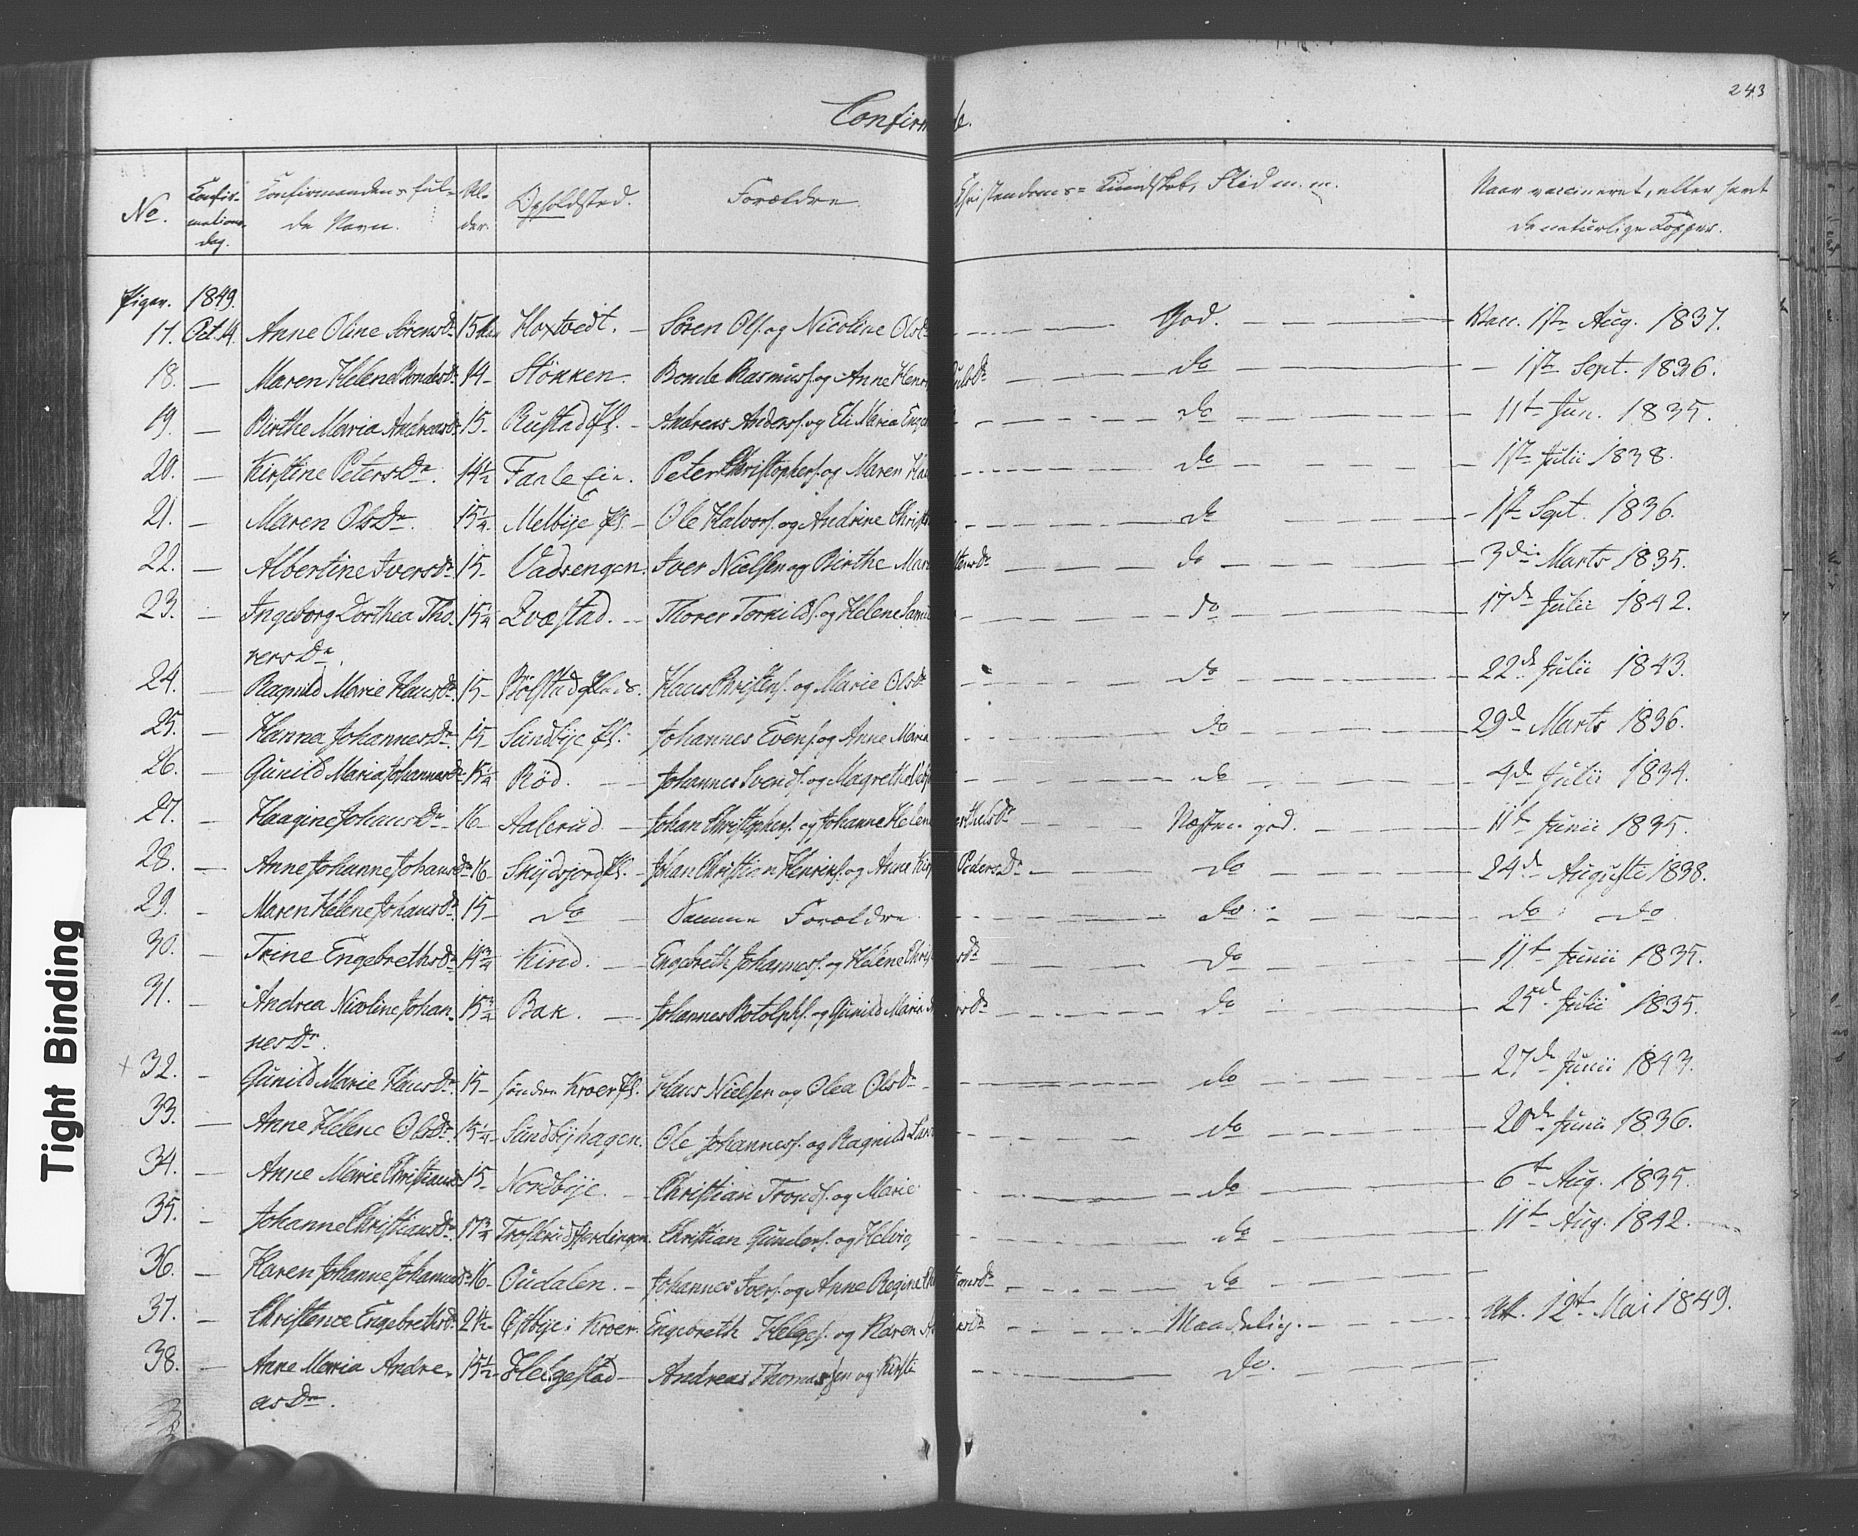 243
Confirm de.
No. Confir- mations- dag. Confirmandens ful- de Navn. Al- der. Opholdsted. Forældre. Christendoms-Kundskab, Flid m. m. Naar vaccineret, eller havt de naturlige Kopper.
Piger. 1849.
17. Oct. 14. Anne Oline Sørensdr 15 Hoxtvedt. Søren Ols. og Nicoline Olsdr God. Vacc. 1ste Aug. 1837.
18. — Maren Helene Bondesdr 14 Stökken. Bonde Rasmuss. og Anne Hen dr do 1ste Sept. 1836.
19. — Birthe Maria Andreasdr 15 Rustad Pl. Andreas Anders. og Eli Maria Enge do 11te Jun. 1835.
20. — Kirstine Petersdr. 14½ Faale Eie. Peter Christophers. og Maren Ha do 1ste Julii 1838.
21. — Maren Olsdr. 15¼ Melbye Pl. Ole Halvors. og Andrine Christ do 1ste Sept. 1836.
22. — Albertine Iversdr 15 Vadsengen. Iver Nielsen og Birthe Mar dr do 3die Marts 1835.
23. — Ingeborg Dorthea Tho- 15¼ Qvæstad. Thorer Torkilds. og Helene Samu do 17de Julii 1842.
rersdr.
24. — Ragnild Marie Hansdr 15 Bölstad Plads. Hans Christens. og Marie Olsdr do 22de Julii 1843.
25. — Hanna Johannesdr 15 Sundbye Pl. Johannes Evens. og Anne Maria do 29de Marts 1836.
26. — Gunild Maria Johannesdr 15¼ Röd. Johannes Svends. og Magrethe do 4de Julii 1834.
27. — Haagine Johansdr 16 Aalerud Johan Christophers. og Johanne Helene dr Næsten god. 11te Junii 1835.
28. — Anne Johanne Johansdr 16 Skydsjord Pl. Johan Christian Henriks. og Anne Kir Pedersdr do 24de Auguste 1838.
29. — Maren Helene Johansdr 15 do Samme Forældre do do do
30. — Trine Engebrethsdr 14¾ Kind. Engebreth Johannes. og Helene Chris dr do 11te Junii 1835.
31. — Andrea Nicoline Johan- 15¾ Bak. Johannes Rotolphs. og Gunild Maria dr do 25de Julii 1835.
nesdr.
+ 32. — Gunild Marie Hansdr 15 søndre Kroer Pl. Hans Nielsen og Olea Olsdr do 27de Junii 1843.
33. — Anne Helene Olsdr 15¼ Sundbyhagen. Ole Johanness. og Ragnild Lar do 20de Junii 1836.
34. — Anne Marie Christiansdr 15 Nordbye. Christian Tronds. og Marie do 6te Aug. 1835.
35. — Johanne Christiansdr 17¾ Christian Gunders. og Helvig do 11te Aug. 1842.
36. — Karen Johanne Johannesdr 16 Oudalen. Johannes Ivers. og Anne Regine Ch tiansdr do
37. — Christence Engebrethsdr 21½ Østbye i Kroer Engebreth Helges. og Karen A dr Maadelig. Att. 12te Mai 1849.
38. — Anne Maria Andre- 15½ Helgestad Andreas Thomassen og Kirsti do.
asdr.
Tight Binding